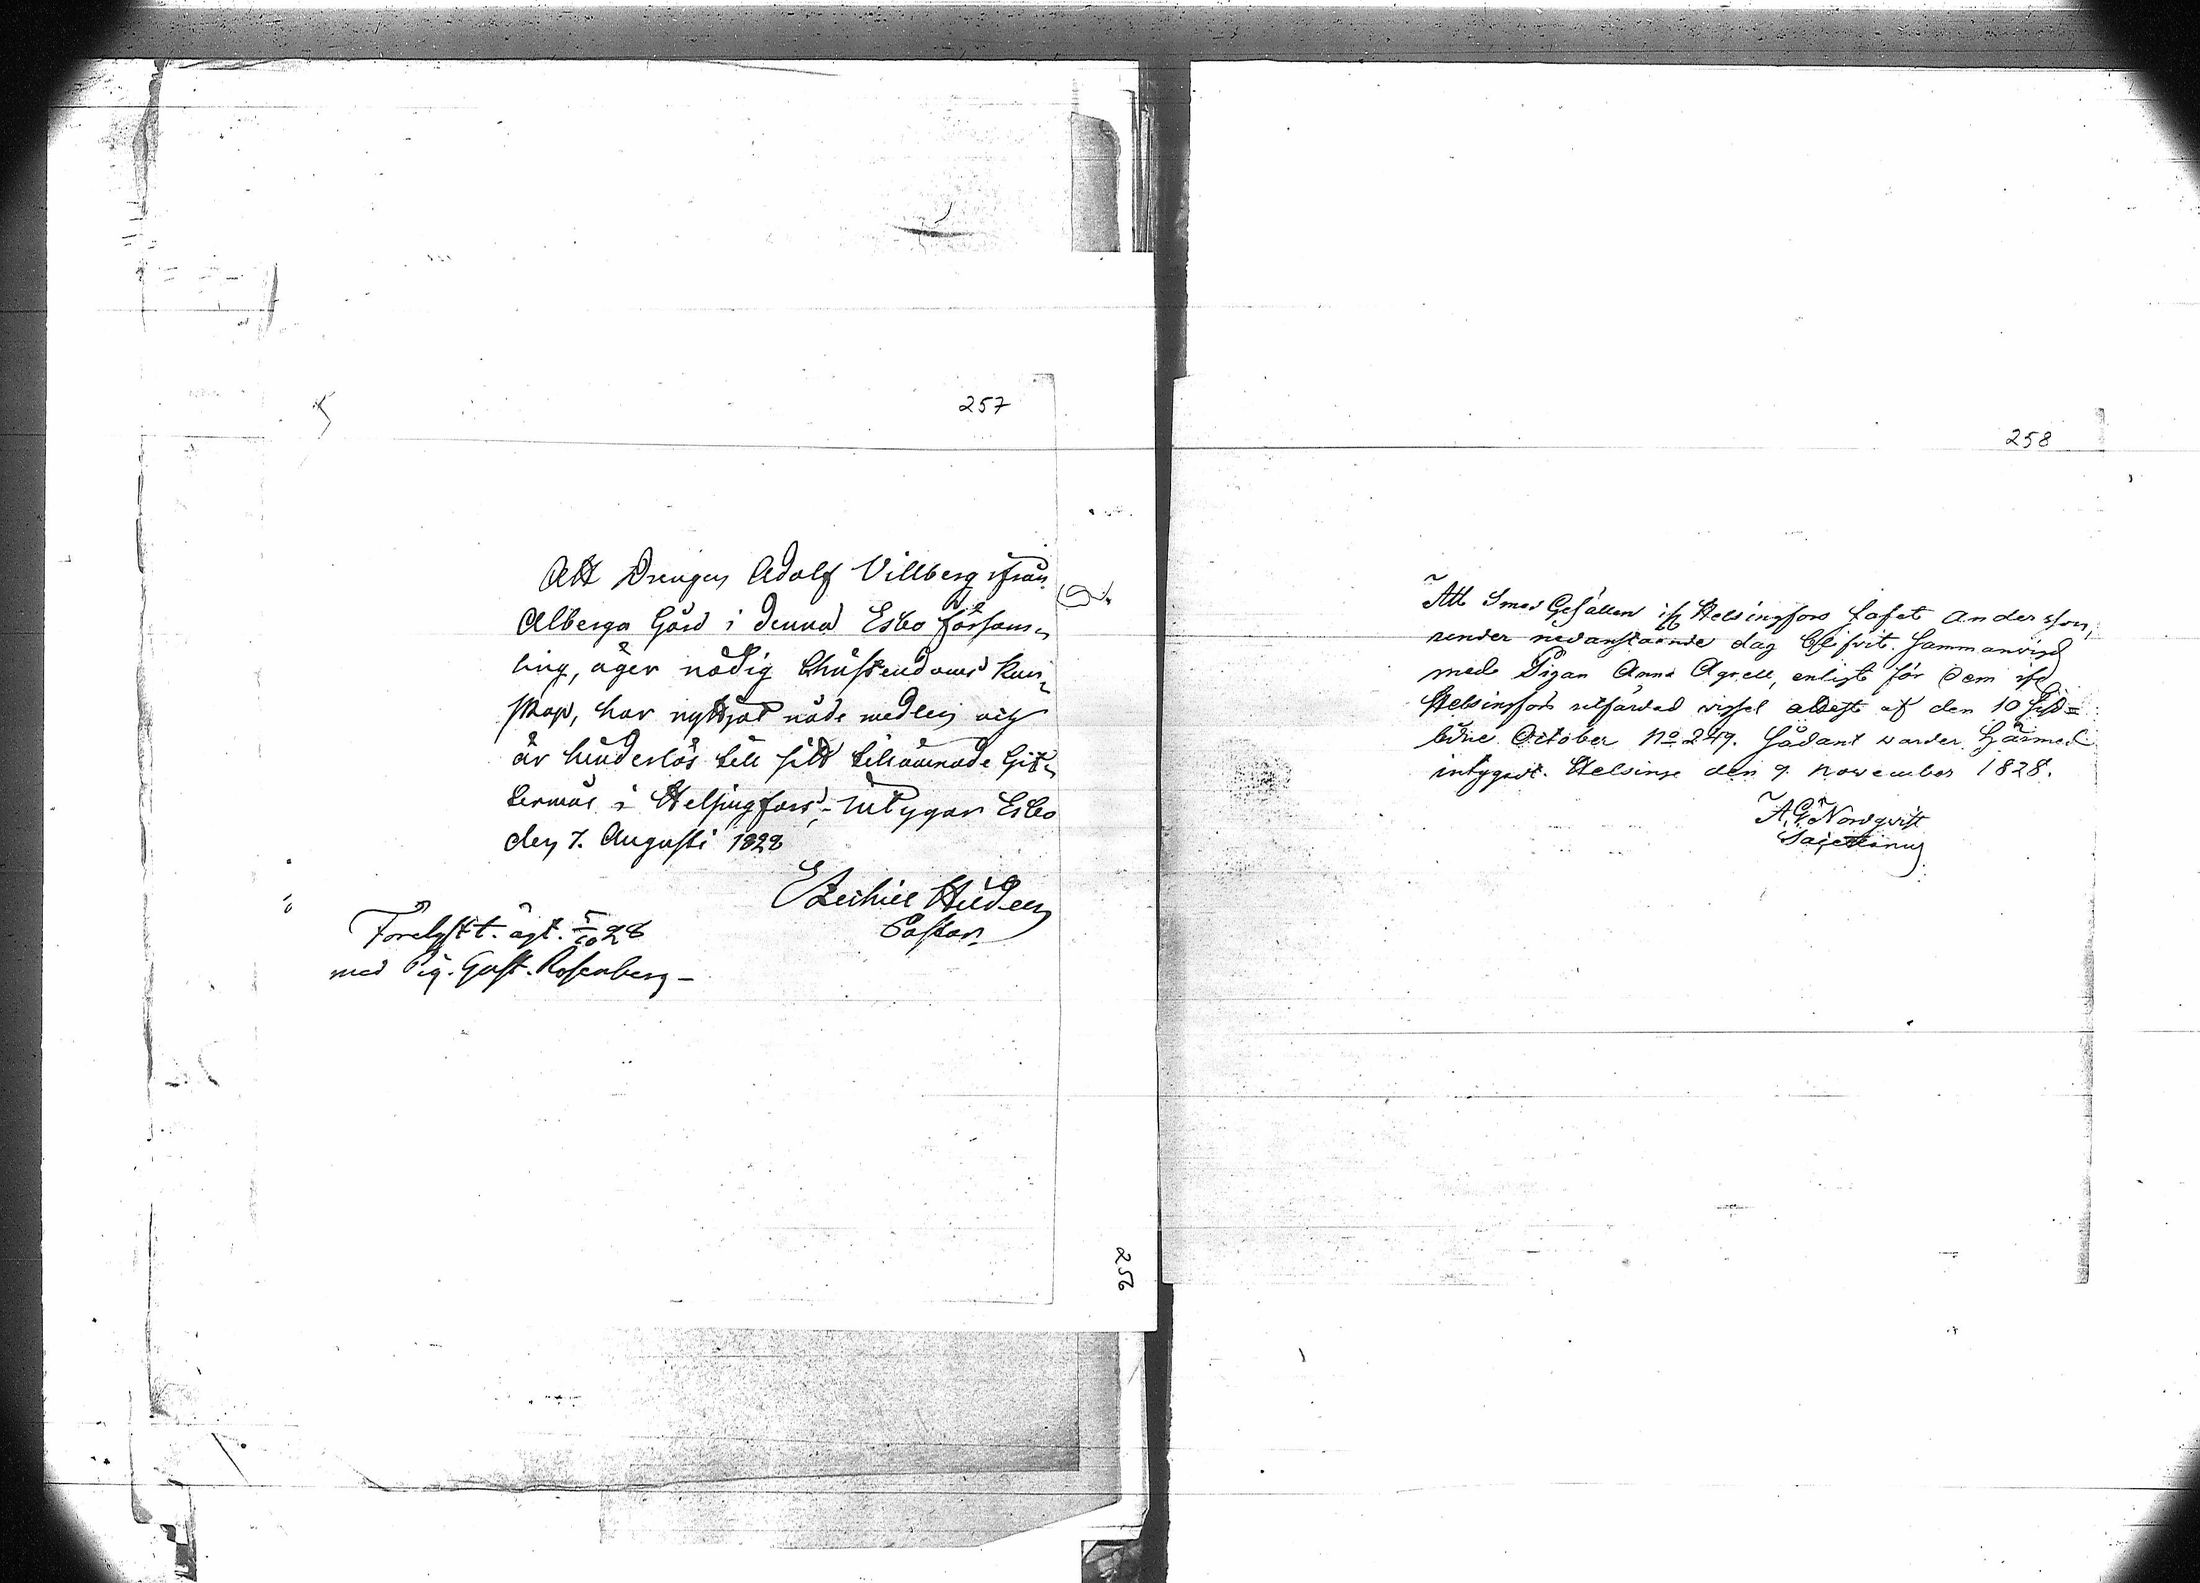 257
Att Drengen Adolf Villberg ifrån
Alberga Gård i denna Esbo församˍ
ling, äger nödig Christendoms kunˍ
skap, har nyttjat nåde medlen och
är hinderlös till sitt tillämnade Gifˍ
termål i Helsingfors, intygar Esbo
den 7. Augusti 1828
Ezechiel Hideen
Pastor.
Forelyst t. ägt. 5/10 28
med Pig. Gust. Rosenberg –
256
258
Att Smed Gesällen ifr Helsingfors Jafet Andersson,
under nedanstående dag blifvit sammanvigd
med Pigan Anna Agrell, enligt för dem ifrå
Helsingfors utfärdad attest af den 10 sistˍ
ledne October No 249. Sådant warder härmed
intygadt. Helsinge den 9. November 1828.
A. G. Nordqvist
Sacellanus